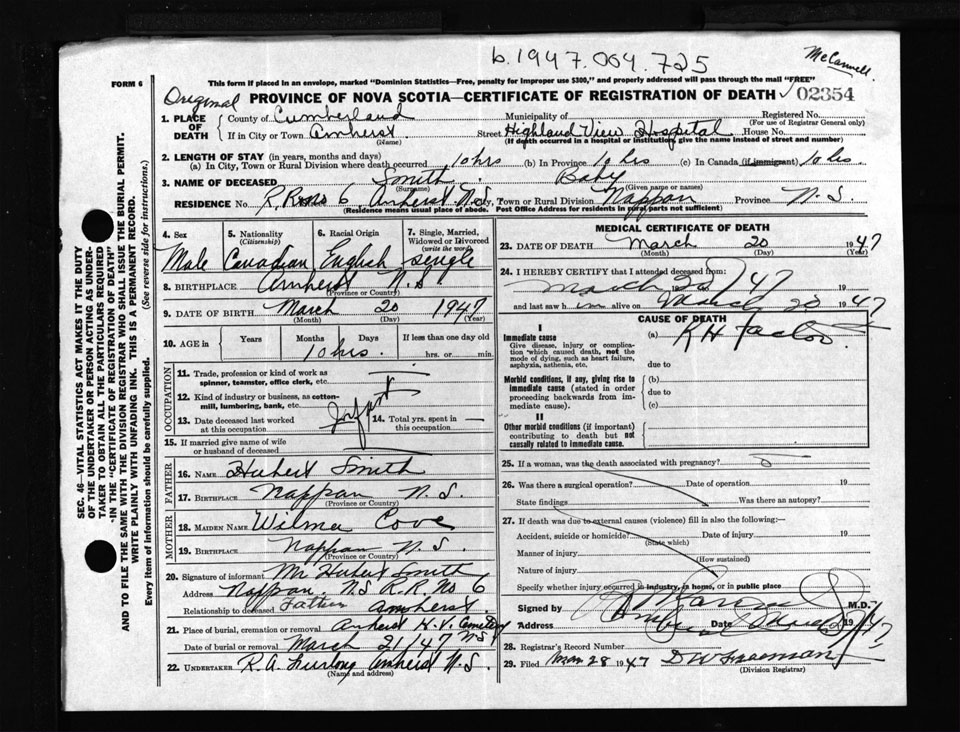 b.1947.004.725
McCannell.
FORM 6
This form if placed in an envelope, marked "Dominion Statistics—Free, penalty for improper use $300," and properly addressed will pass through the mail "FREE"
Original PROVINCE OF NOVA SCOTIA—CERTIFICATE OF REGISTRATION OF DEATH 02354
1. PLACE OF DEATH
County of Cumberland Municipality of Registered No.
(For use of Registrar General only)
If in City or Town Amherst. Street Highland View Hospital House No.
(Name) (If death occurred in a hospital or institution, give the name instead of street and number)
2. LENGTH OF STAY (in years, months and days)
(a) In City, Town or Rural Division where death occurred 10 hrs (b) In Province 10 hrs (c) In Canada (if immigrant) 10 hrs.
3. NAME OF DECEASED Smith Baby
(Surname) (Given name or names)
RESIDENCE No. R.R. no 6 Amherst N.S. City, Town or Rural Division Nappan Province N.S.
(Residence means usual place of abode. Post Office Address for residents in rural parts not sufficient)
4. Sex
Male
5. Nationality
(Citizenship)
Canadian
6. Racial Origin
English
7. Single, Married, Widowed or Divorced
(write the word)
single
8. BIRTHPLACE Amherst N.S.
(Province or Country)
9. DATE OF BIRTH March 20 1947
(Month) (Day) (Year)
10. AGE in Years Months Days If less than one day old
10 hrs. hrs. or min.
OCCUPATION
11. Trade, profession or kind of work as
spinner, teamster, office clerk, etc.
12. Kind of industry or business, as cotton-
mill, lumbering, bank, etc.
Infant
13. Date deceased last worked
at this occupation
14. Total yrs. spent in
this occupation
15. If married give name of wife
or husband of deceased
FATHER
16. NAME Hubert Smith
17. BIRTHPLACE Nappan N.S.
(Province or Country)
MOTHER
18. MAIDEN NAME Wilma Cove
19. BIRTHPLACE Nappan N.S.
(Province or Country)
20. Signature of informant Mr Hubert Smith
Address Nappan, N.S R.R. No 6
Relationship to deceased Father Amherst.
21. Place of burial, cremation or removal Amherst H.V. Cemetery
Date of burial or removal March 21/47 N.S
22. UNDERTAKER R.A. Furlong Amherst N.S.
(Name and address)
MEDICAL CERTIFICATE OF DEATH
23. DATE OF DEATH March 20 1947
(Month) (Day) (Year)
24. I HEREBY CERTIFY that I attended deceased from:
March 20/47
and last saw him alive on March 20 1947
CAUSE OF DEATH
I
Immediate cause
Give disease, injury or complication which caused death, not the mode of dying, such as heart failure, asphyxia, asthenia, etc.
(a) RH Factor
due to
Morbid conditions, if any, giving rise to immediate cause (stated in order proceeding backwards from immediate cause).
(b)
due to
(c)
II
Other morbid conditions (if important) contributing to death but not causally related to immediate cause.
25. If a woman, was the death associated with pregnancy?
26. Was there a surgical operation? Date of operation 19
State findings Was there an autopsy?
27. If death was due to external causes (violence) fill in also the following:—
Accident, suicide or homicide? Date of injury 19
(State which)
Manner of injury
(How sustained)
Nature of injury
Specify whether injury occurred in industry, in home, or in public place
Signed by M.D.
Address Date 19
28. Registrar's Record Number
29. Filed Mar 28 1947 D W Freeman
(Division Registrar)
SEC. 46 VITAL STATISTICS ACT MAKES IT THE DUTY
OF THE UNDERTAKER OR PERSON ACTING AS UNDER-
TAKER TO OBTAIN ALL THE PARTICULARS REQUIRED
IN THE "CERTIFICATE OF REGISTRATION OF DEATH"
AND TO FILE THE SAME WITH THE DIVISION REGISTRAR WHO SHALL ISSUE THE BURIAL PERMIT.
WRITE PLAINLY WITH UNFADING INK. THIS IS A PERMANENT RECORD.
Every item of information should be carefully supplied. (See reverse side for instructions.)